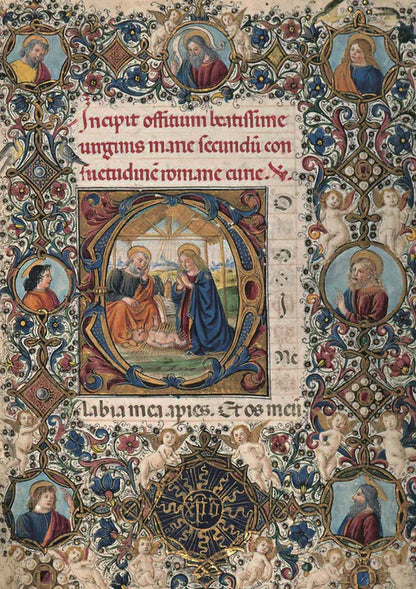 Incipit offitium beatissime
uirginis marie secundũ con
suetudinẽ romane curie.
D
O
I
Ne
labia mea apies. Et os meũ